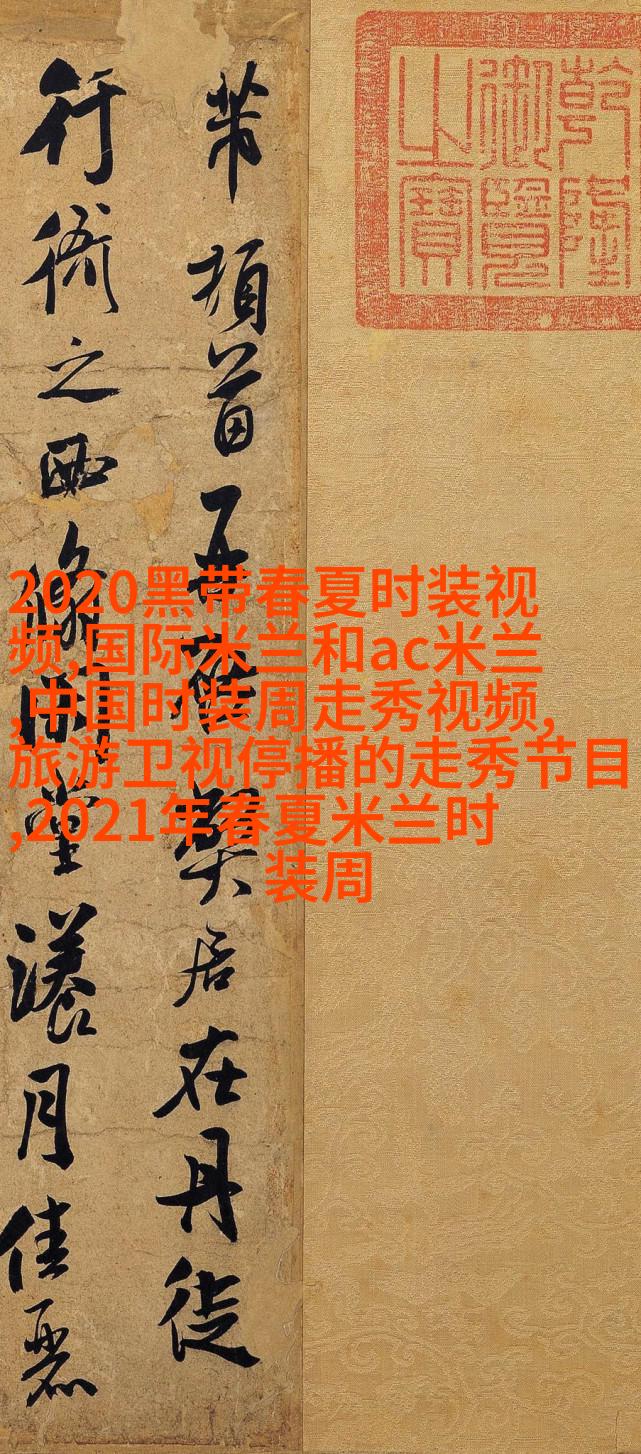 乾隆
御覽
之寶
芾頓首再啓弊居在丹徒
行衙之西翛閑堂漾月佳麗
2020黑带春夏时装视
频,国际米兰和ac米兰
,中国时装周走秀视频,
旅游卫视停播的走秀节目
,2021年春夏米兰时
装周